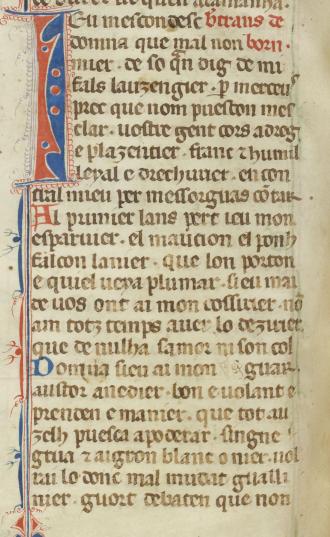 Ieu mescondesc bertrans de
domna que mal non born.
mier. de so qͥn dig de mi
fals lauzengier. ꝑ merceus
prec que nom pueston mes
clar. uostre gent cors adreg
e plazentier. franc ⁊ humil
leyal e drechurier. en con
tral mieu per messorguas cōtar
Al primier lans pert ieu mon
esparuier. el maucion el ponh
falcon lanier. que lon porton
e quiel ueya plumar. sieu mai
de uos ont ai mon cossirier. nō
am totz temps auer lo dezirier
que de nulha samor ni son col
Domna sieu ai mon guar.
austor anedier. bon e uolant e
prenden e manier. que tot au
zelh puesca apoderar. singne
grua ⁊ aigron blanc o nier. uol
rai lo donc mal mudat gualli
nier. guort debaten que non